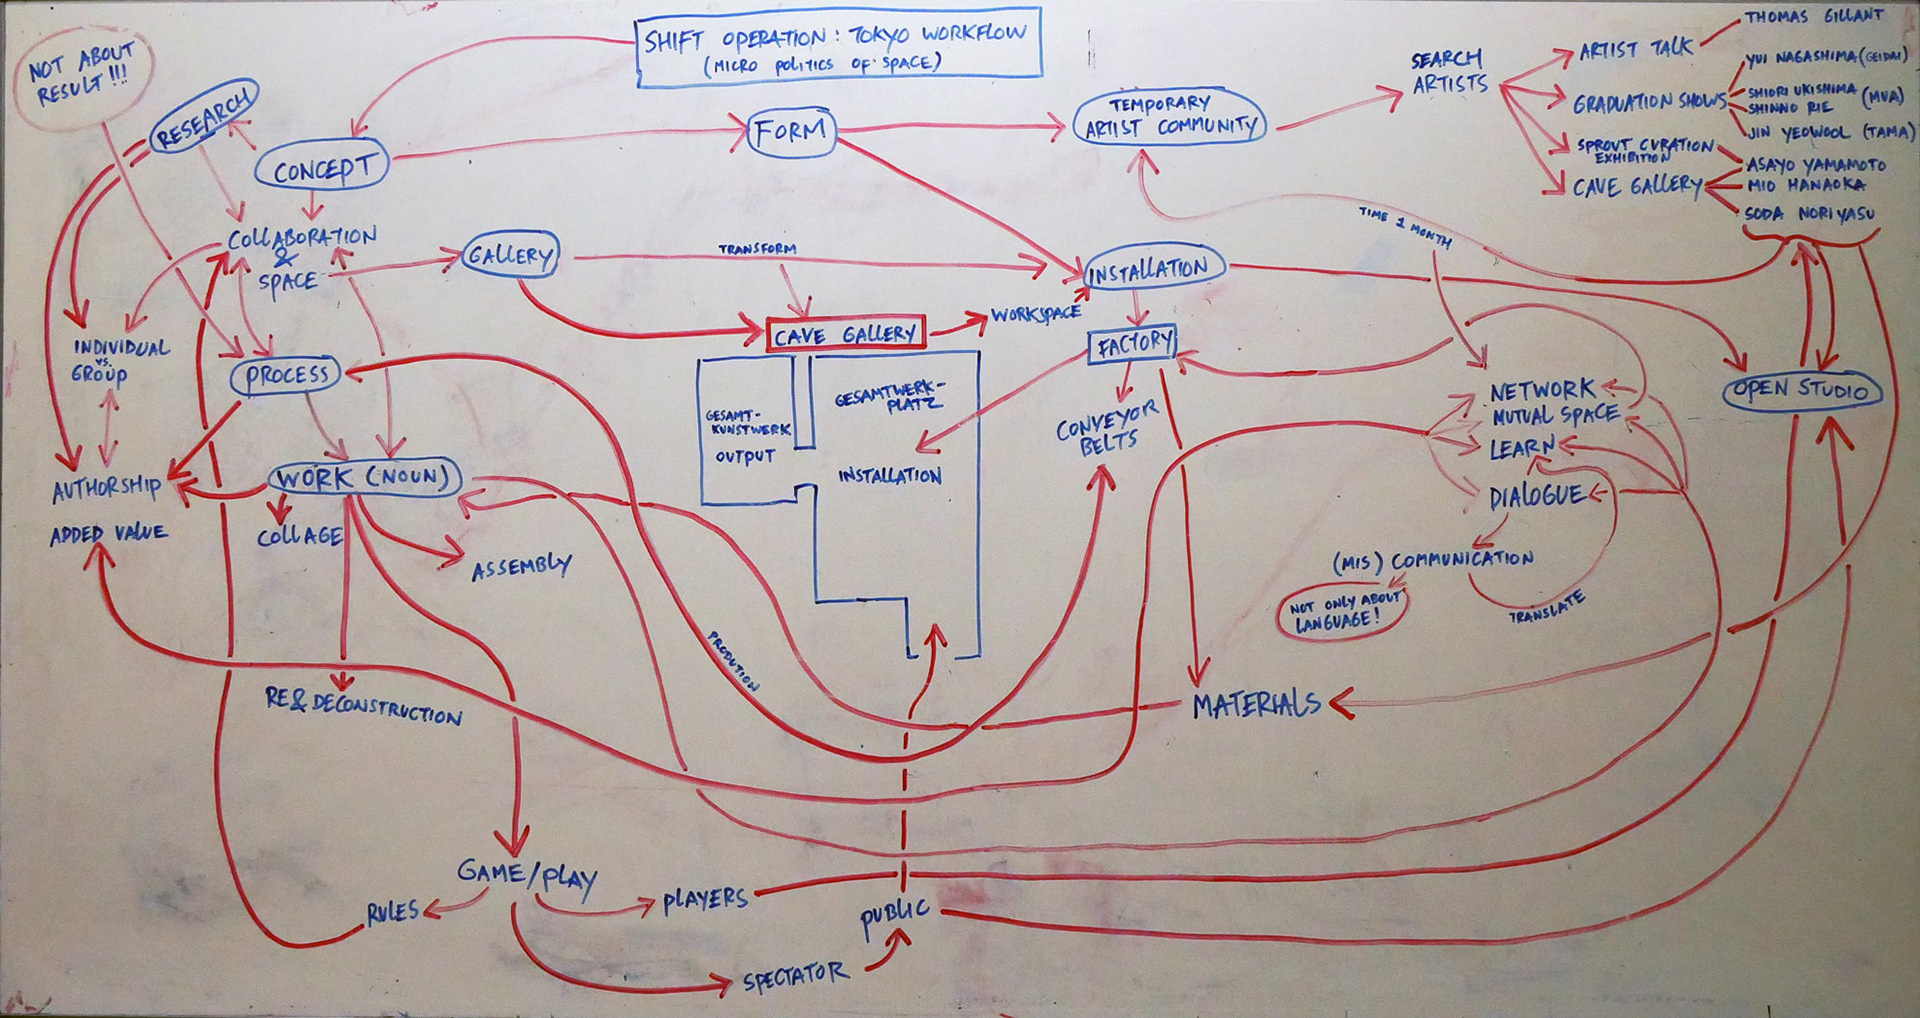 SHIFT OPERATION: TOKYO WORKFLOW
(MICRO POLITICS OF SPACE)
NOT ABOUT
RESULT!!!
RESEARCH
CONCEPT
FORM
TEMPORARY
ARTIST COMMUNITY
SEARCH
ARTISTS
ARTIST TALK
THOMAS GILLANT
GRADUATION SHOWS
YUI NAGASHIMA (GEIDAI)
SHIORI UKISHIMA
SHINNO RIE
(MUA)
JIN YEOWOOL (TAMA)
SPROUT CURATION
EXHIBITION
CAVE GALLERY
ASAYO YAMAMOTO
MIO HANAOKA
SODA NORIYASU
COLLABORATION
&
SPACE
GALLERY
TRANSFORM
INSTALLATION
TIME 1 MONTH
CAVE GALLERY
WORKSPACE
FACTORY
INDIVIDUAL
VS.
GROUP
PROCESS
GESAMT-
KUNSTWERK
OUTPUT
GESAMTWERK-
PLATZ
INSTALLATION
CONVEYOR
BELTS
NETWORK
MUTUAL SPACE
LEARN
DIALOGUE
OPEN STUDIO
AUTHORSHIP
ADDED VALUE
WORK (NOUN)
COLLAGE
ASSEMBLY
(MIS) COMMUNICATION
NOT ONLY ABOUT
LANGUAGE!
TRANSLATE
PRODUTION
RE&DECONSTRUCTION
MATERIALS
GAME/PLAY
RULES
PLAYERS
PUBLIC
SPECTATOR